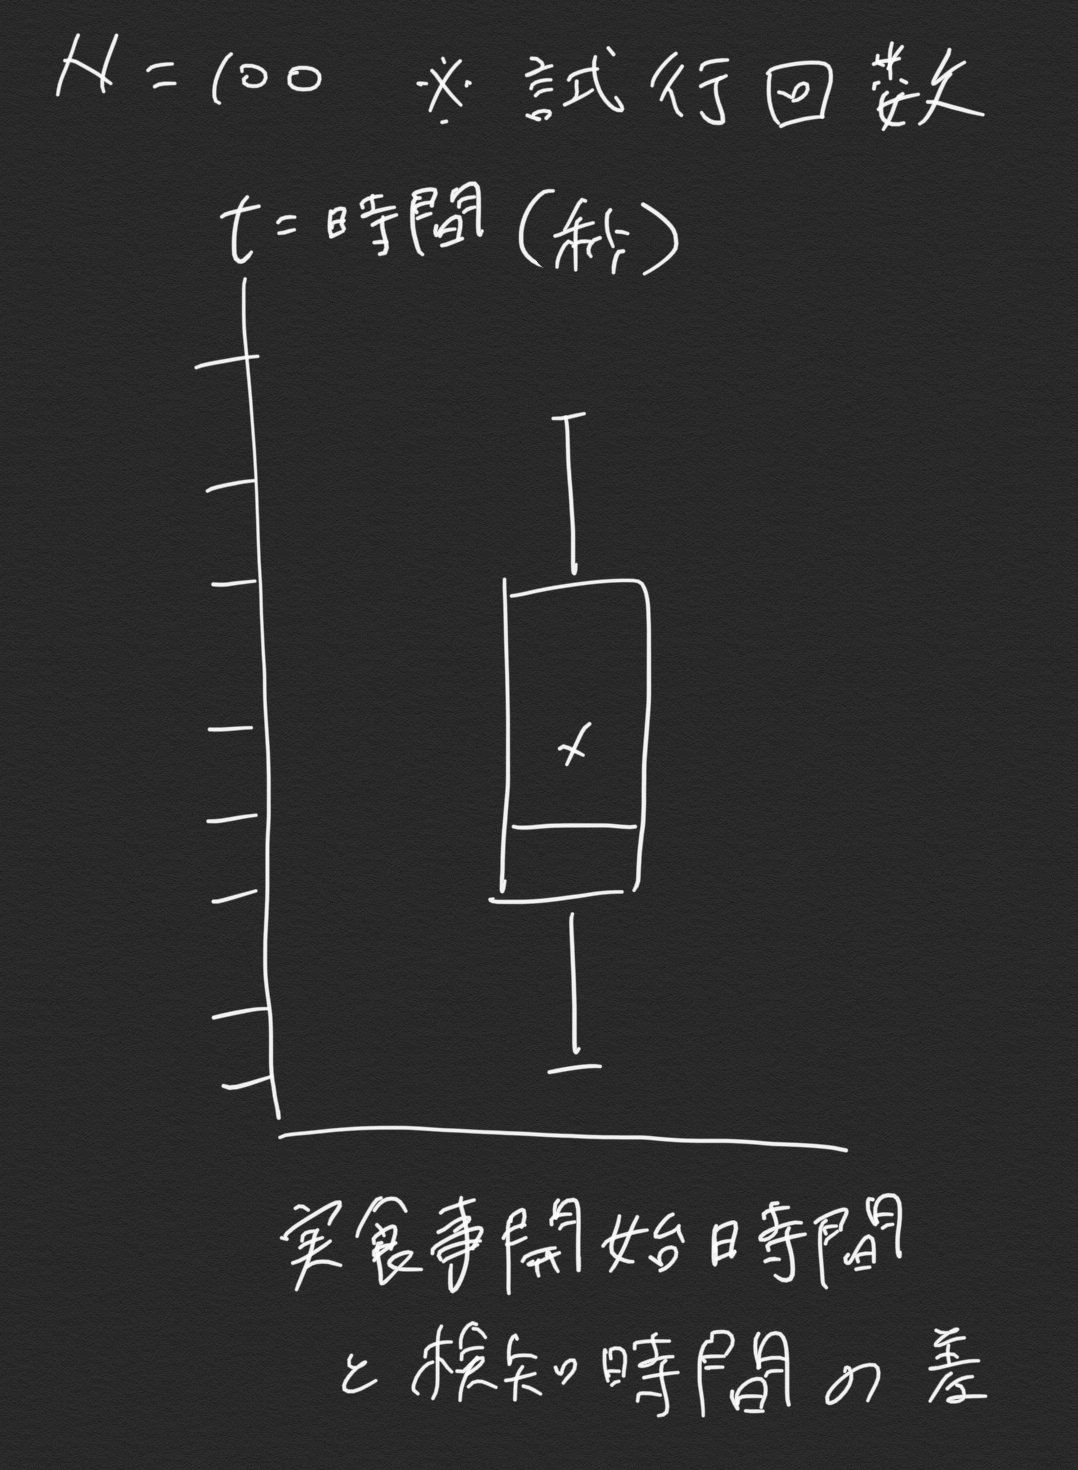 N=100 ※試行回数
t=時間(秒)
実食事開始日時間
と検知時間の差